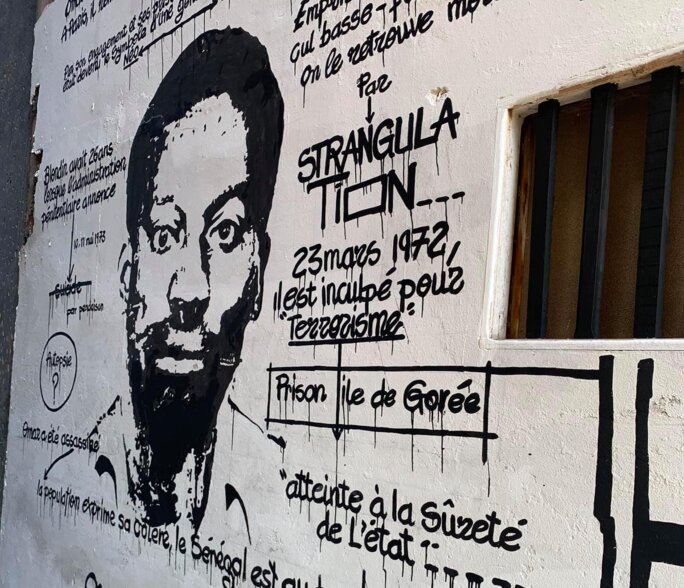 A Paris, il
Par son engagement et ses
était devenu le symbole d'une
Blondin avait 26ans
lorsque l'administration
pénitentiaire annonce
mai 1973
suicide
par pendaison
Autopsie
?
Omar a été assassiné
la population exprime sa colère, le Sénégal est au
qui basse-
on le retrouve
Par
STRANGULA
TION---
23 mars 1972,
il est inculpé pour
"Terrorisme"
Prison île de Gorée
"atteinte à la Sûreté
de L'État